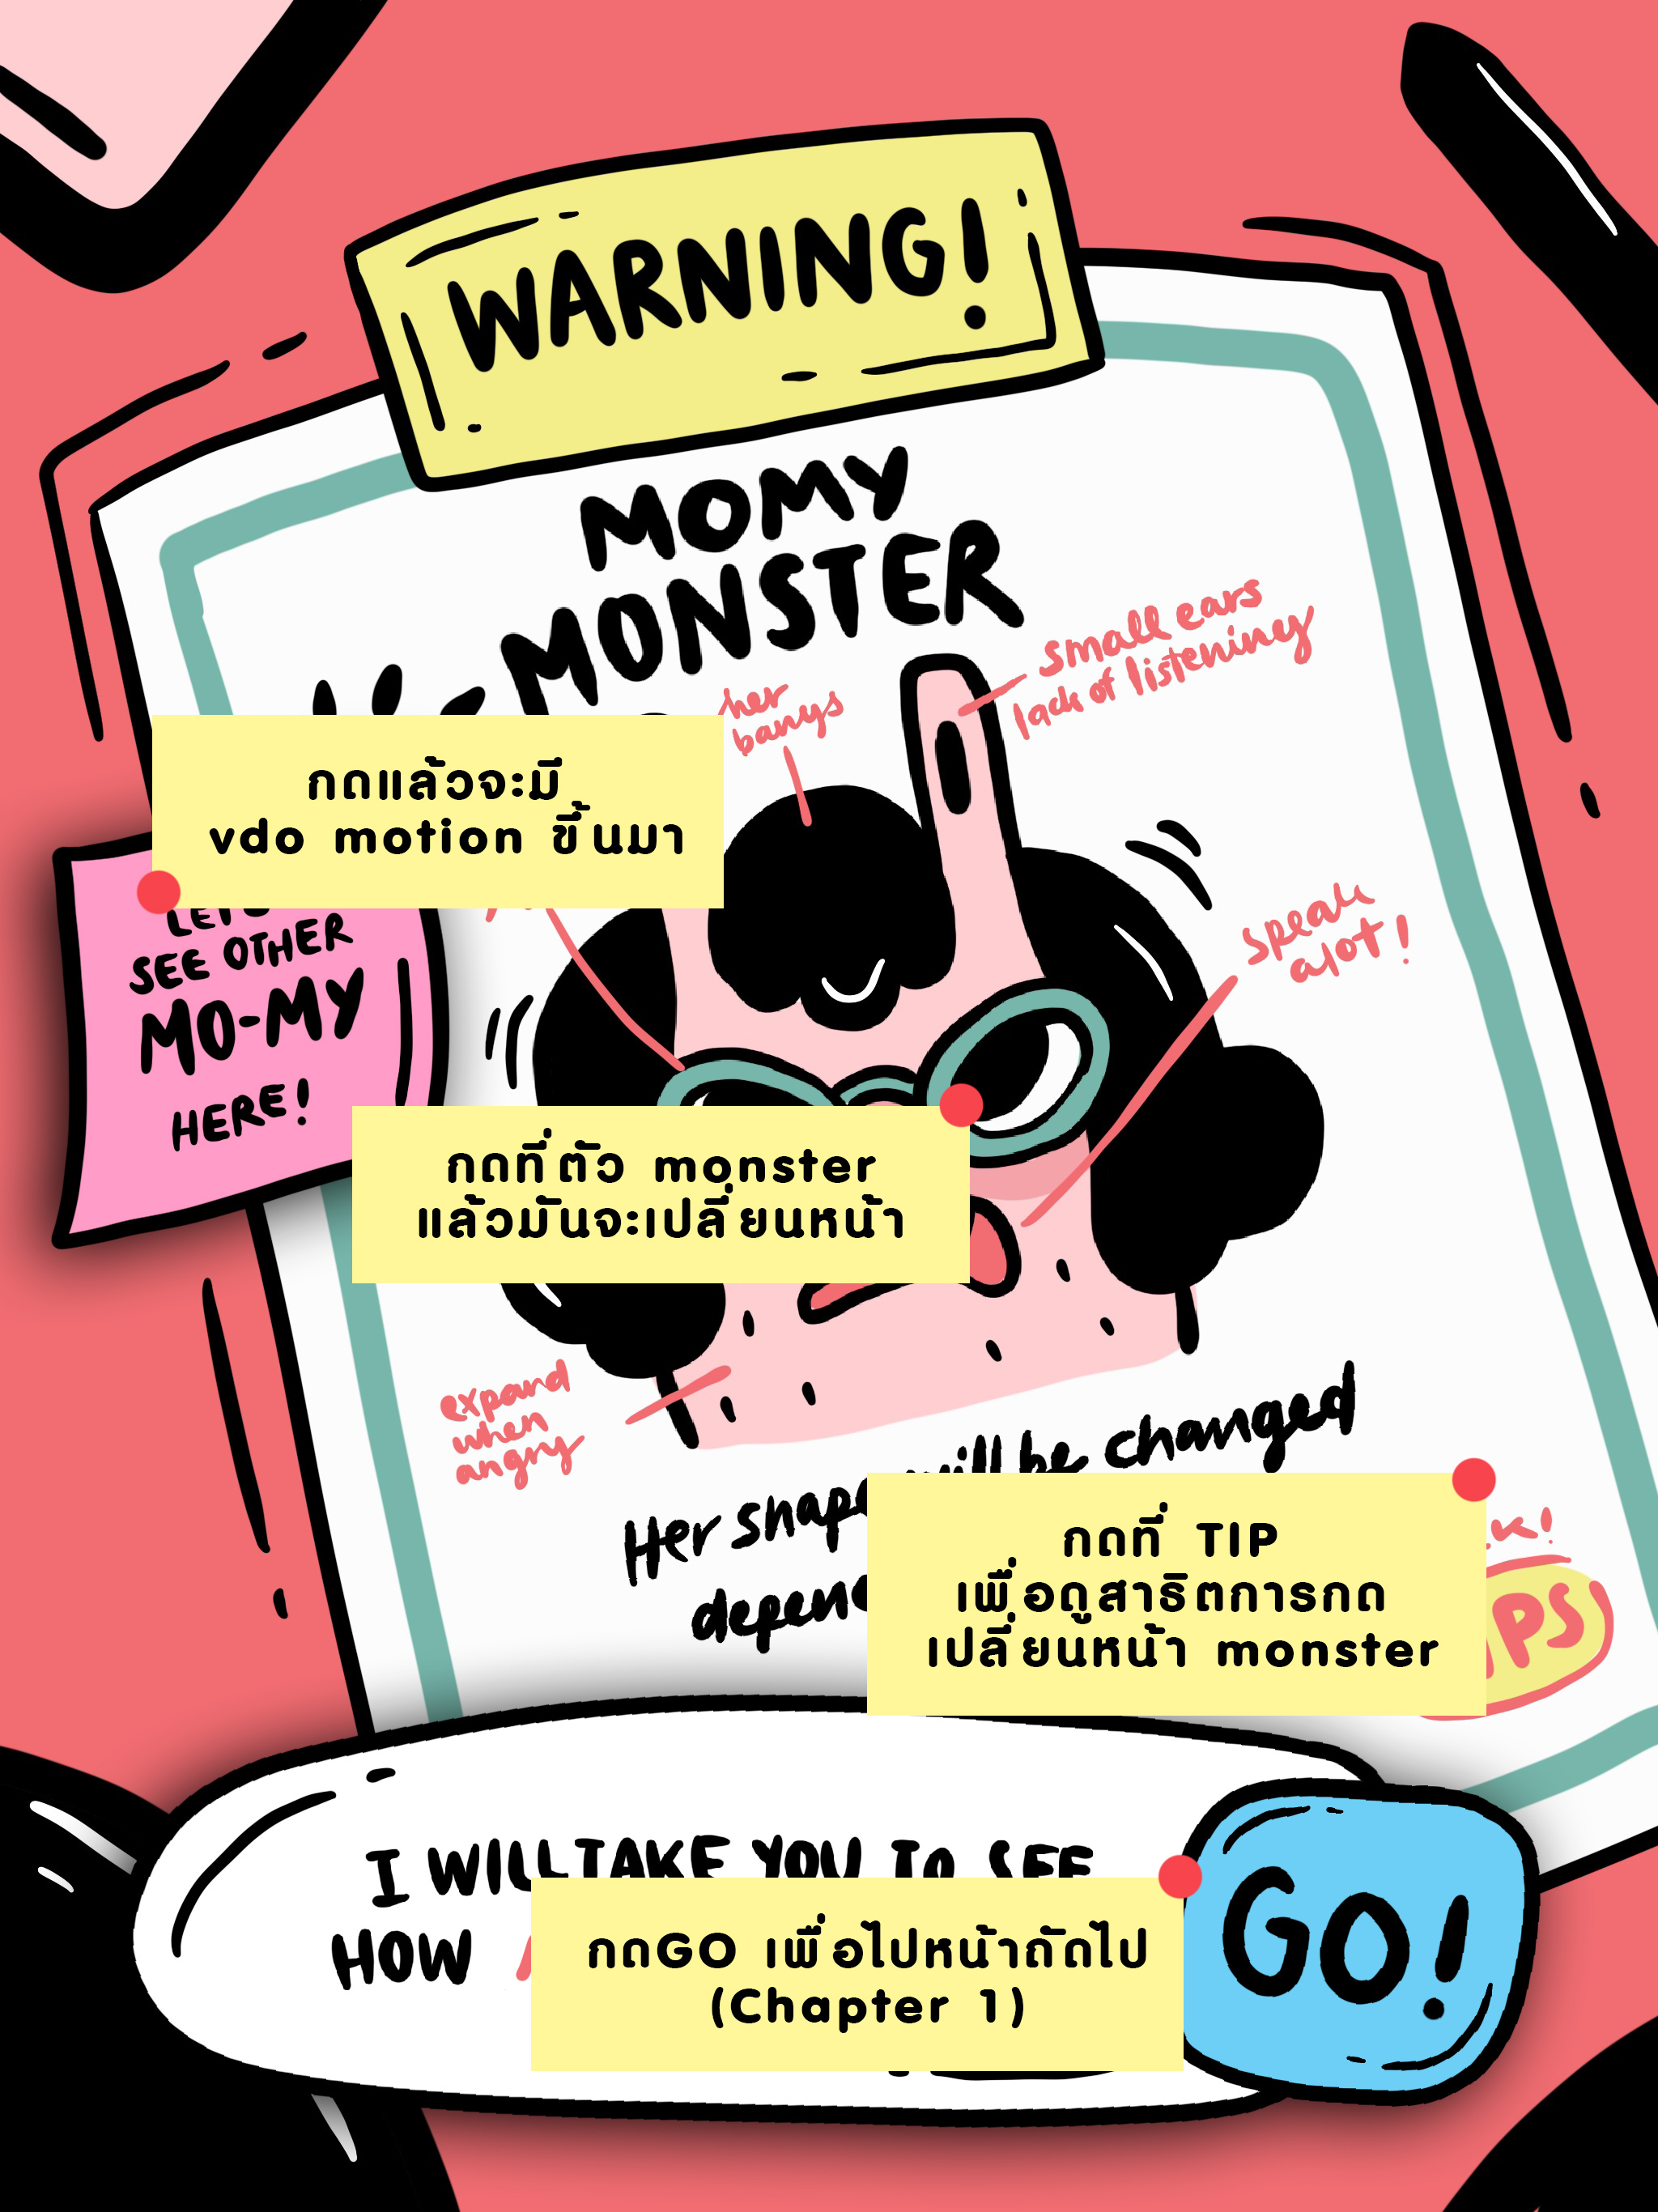 WARNING!
MOMY
MONSTER
her
bangs
small ears
lack of listening
กดแล้วจะมี
vdo motion ขึ้นมา
SEE OTHER
MO-MY
HERE!
speak
alot!
กดที่ตัว monster
แล้วมันจะเปลี่ยนหน้า
expand
when
angry
Her shape will be changed
กดที่ TIP
เพื่อดูสาธิตการกด
เปลี่ยนหน้า monster
I WILL TAKE YOU TO SEE
HOW
กดGO เพื่อไปหน้าถัดไป
(Chapter 1)
GO!